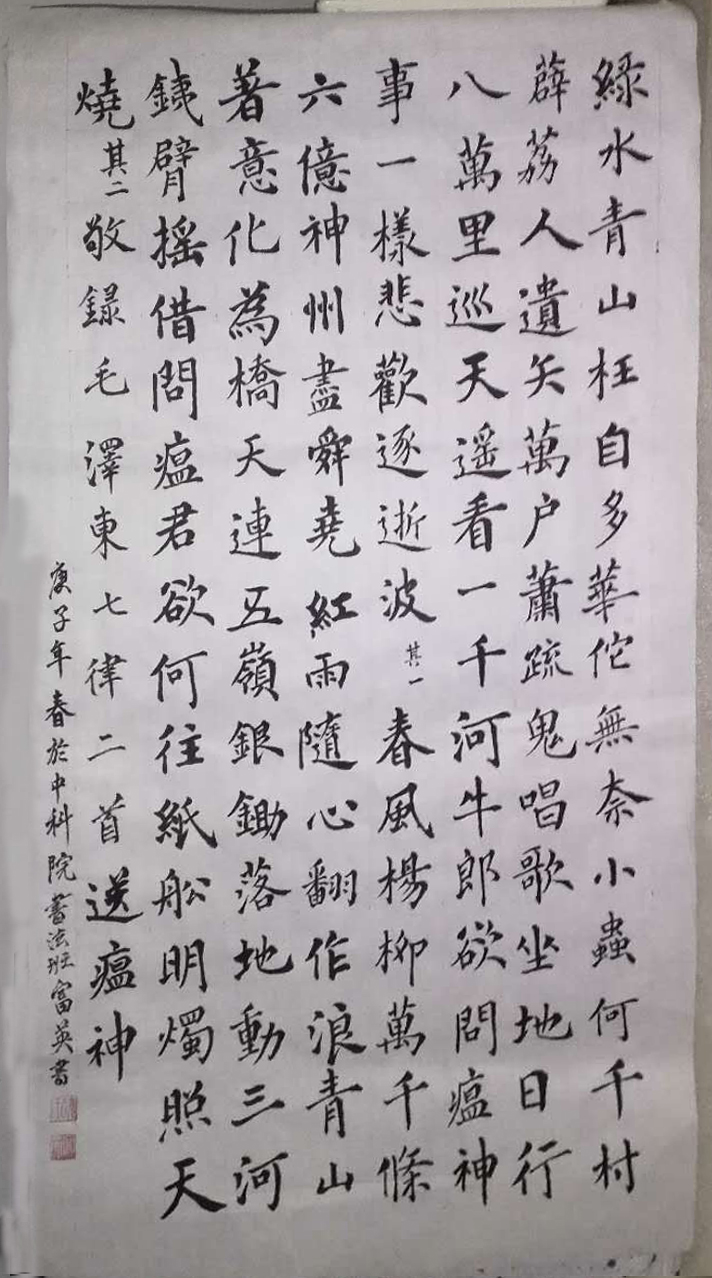 綠水青山枉自多華佗無奈小蟲何千村
薜荔人遺矢萬户蕭疏鬼唱歌坐地日行
八萬里巡天遥看一千河牛郎欲問瘟神
事一樣悲歡逐逝波其一春風楊柳萬千條
六億神州盡舜堯紅雨隨心翻作浪青山
著意化為橋天連五嶺銀鋤落地動三河
鐵臂摇借問瘟君欲何往紙船明燭照天
燒其二敬録毛澤東七律二首送瘟神
庚子年春於中科院書法班富英書